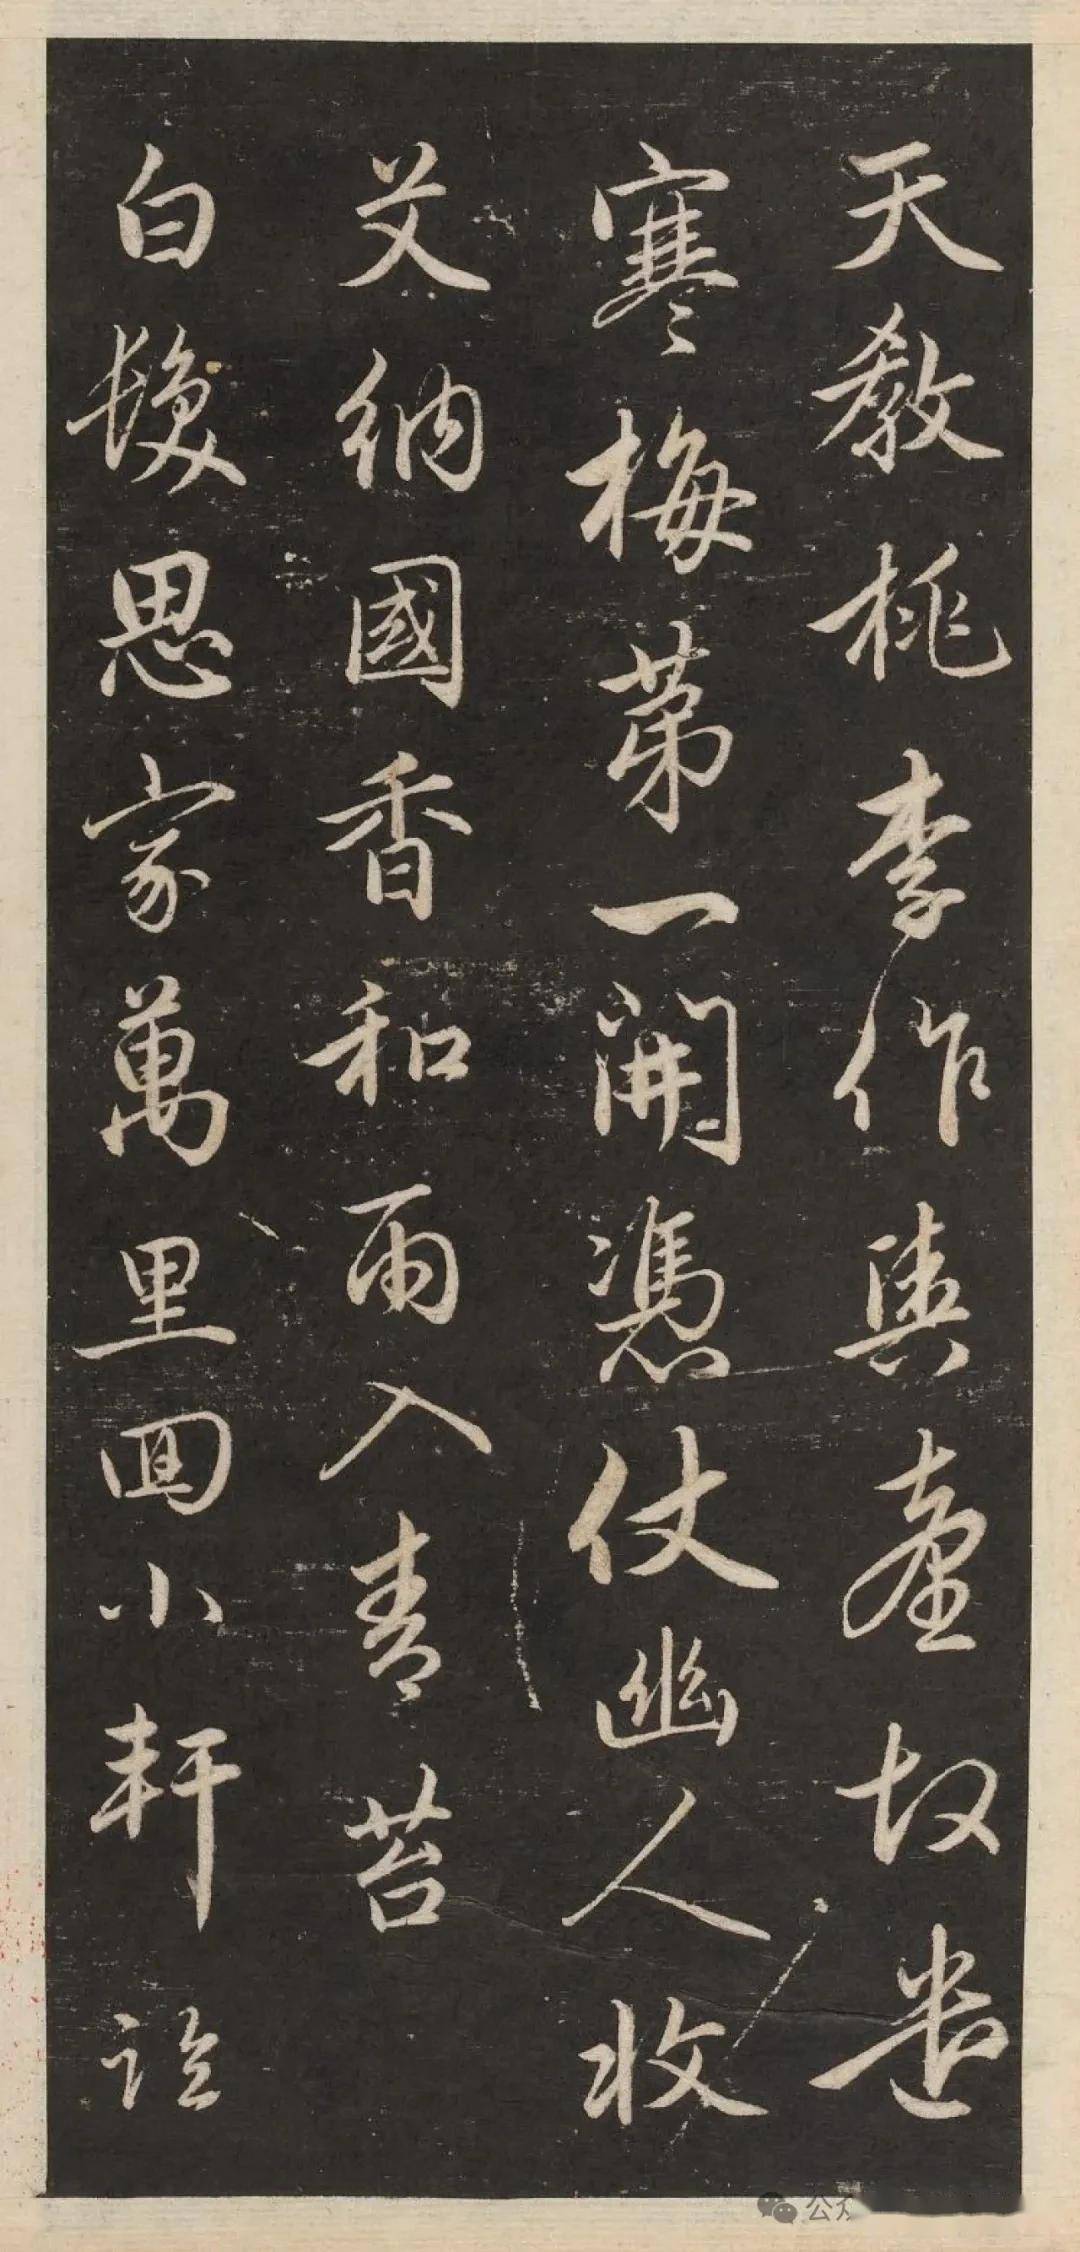 天教桃李作輿臺故遣
寒梅第一開憑仗幽人收
艾納國香和雨入青苔
白髮思家萬里回小軒
公众